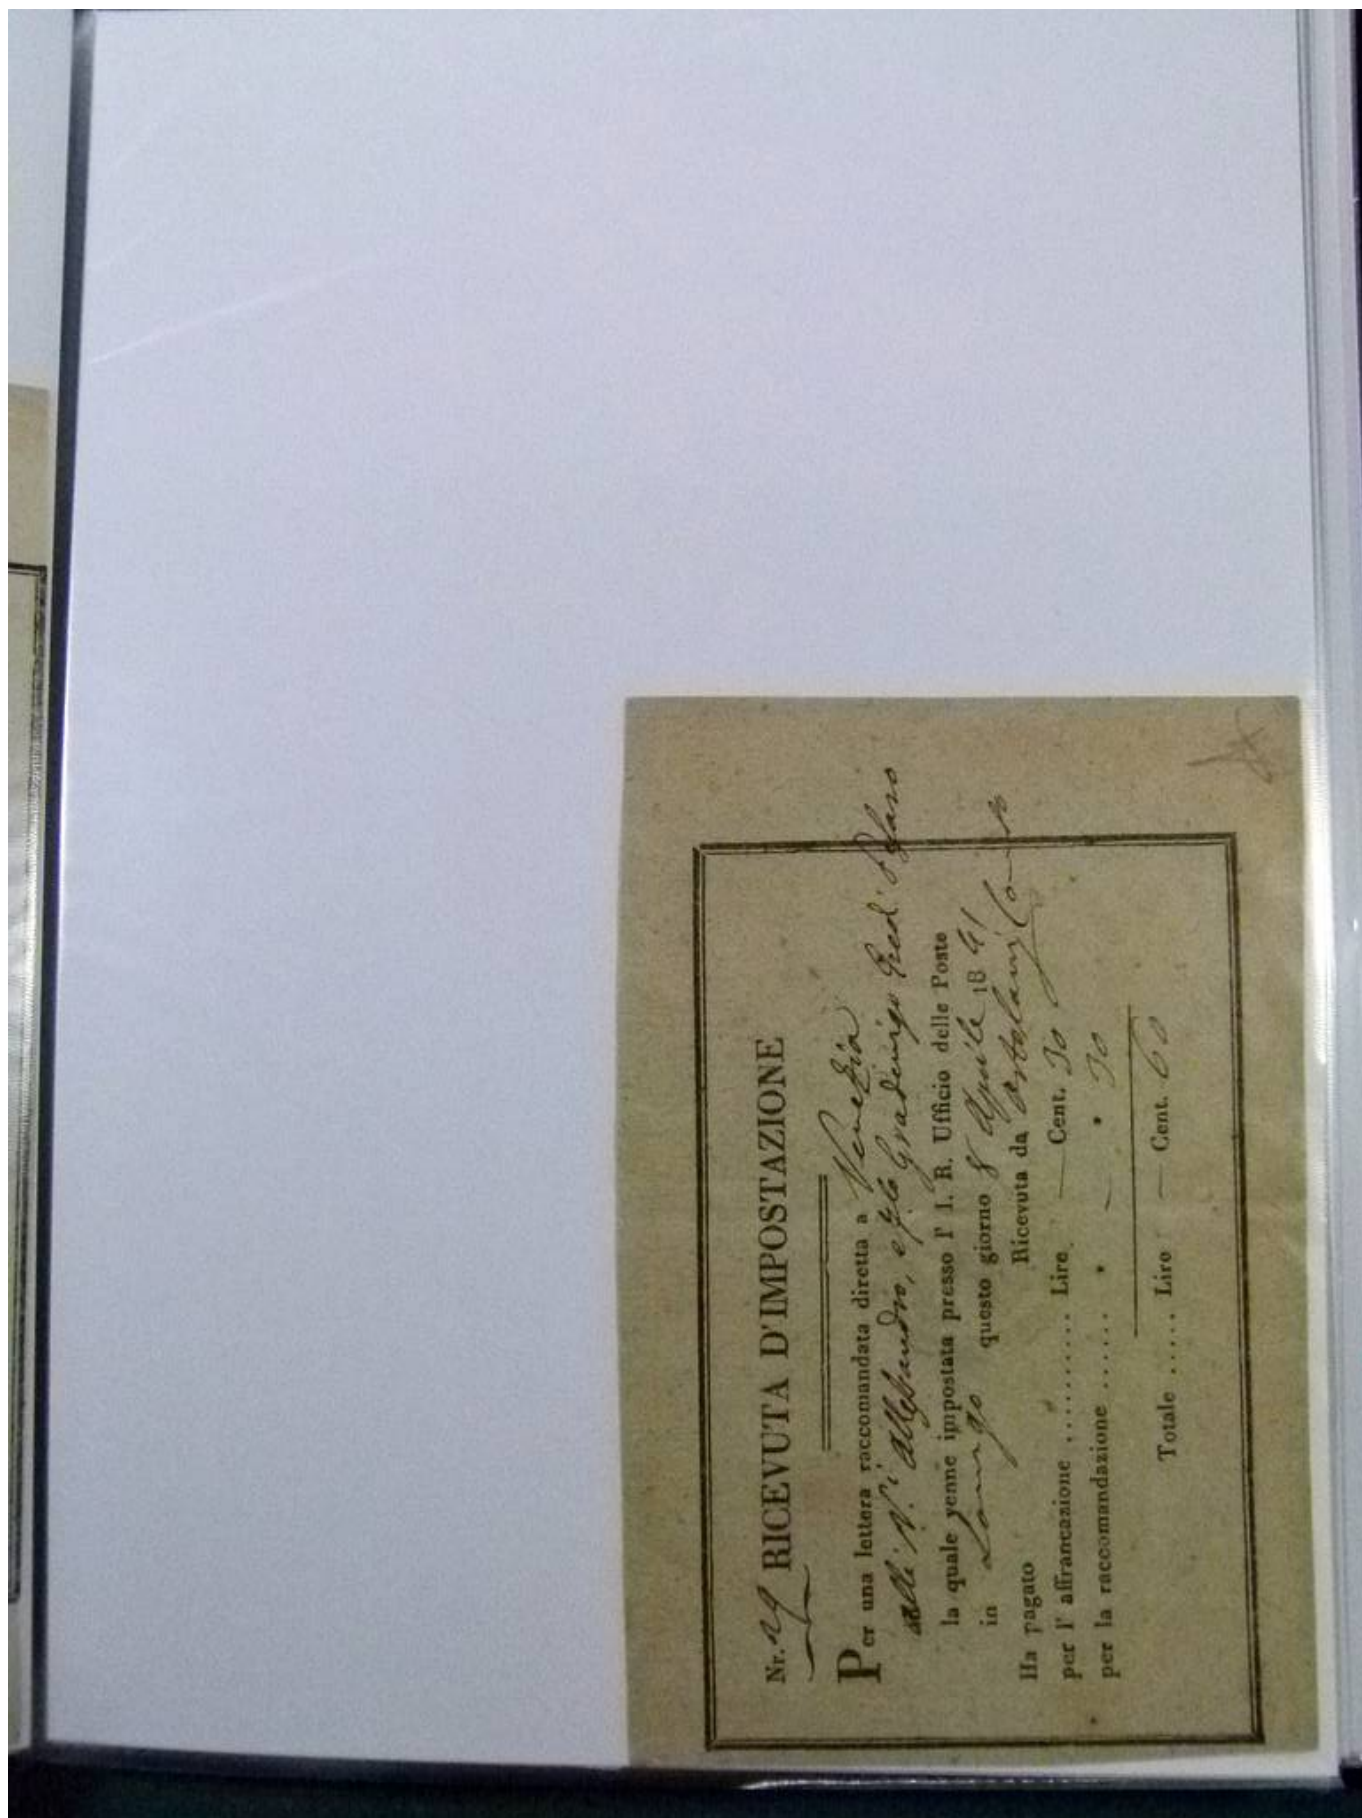 Nr. 29 RICEVUTA D'IMPOSTAZIONE
Per una lettera raccomandata diretta a Venezia
alli N.i Allessandro, e Gradenigo Ered.i
la quale venne impostata presso l' I. R. Ufficio delle Poste
in questo giorno 8 Aprile 18
Ricevuta da
Ha pagato
per l' affrancazione .......... Lire — Cent. 30
per la raccomandazione ....... " — " 30
Totale ..... Lire — Cent. 60